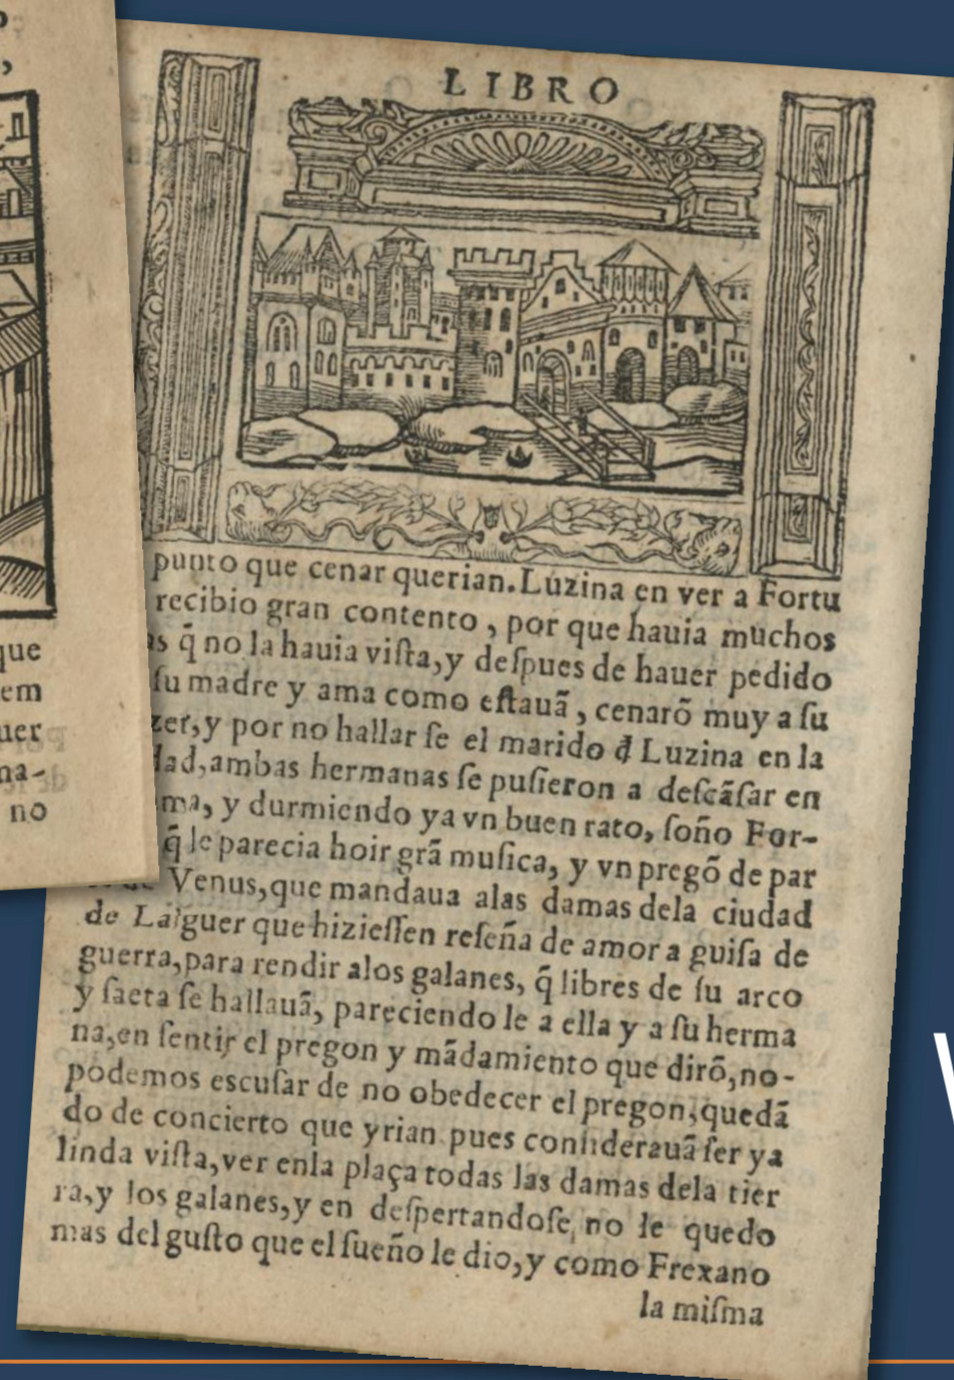 o
,
que
em
uer
na-
no
LIBRO
punto que cenar querian. Luzina en ver a Fortu
recibio gran contento, por que hauia muchos
q̃ no la hauia viſta, y deſpues de hauer pedido
ſu madre y ama como eſtauã, cenarõ muy a ſu
zer, y por no hallar ſe el marido đ Luzina en la
dad, ambas hermanas ſe puſieron a deſcãſar en
ma, y durmiendo ya vn buen rato, ſoño For-
q̃ le parecia hoir grã muſica, y vn pregõ de par
de Venus, que mandaua alas damas dela ciudad
de Lalguer que hizieſſen reſeña de amor a guiſa de
guerra, para rendir alos galanes, q̃ libres de ſu arco
y ſaeta ſe hallauã, pareciendo le a ella y a ſu herma
na, en ſentir el pregon y mãdamiento que dirõ, no-
podemos escuſar de no obedecer el pregon, quedã
do de concierto que yrian pues conſiderauã ſer ya
linda viſta, ver enla plaça todas las damas dela tier
ra, y los galanes, y en deſpertandoſe, no le quedo
mas del guſto que el ſueño le dio, y como Frexano
la miſma